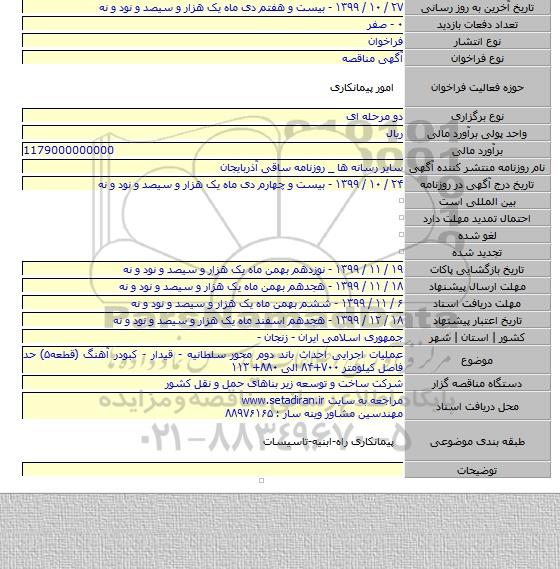 تاریخ آخرین به روز رسانی ۲۷ / ۱۰ / ۱۳۹۹ - بیست و هفتم دی ماه یک هزار و سیصد و نود و نه
تعداد دفعات بازدید ۰ - صفر
نوع انتشار فراخوان
نوع فراخوان آگهی مناقصه
حوزه فعالیت فراخوان امور پیمانکاری
نوع برگزاری دو مرحله ای
واحد پولی برآورد مالی ریال
برآورد مالی 1179000000000
نام روزنامه منتشر کننده آگهی سایر رسانه ها _ روزنامه ساقی آذربایجان
تاریخ درج آگهی در روزنامه ۲۴ / ۱۰ / ۱۳۹۹ - بیست و چهارم دی ماه یک هزار و سیصد و نود و نه
بین المللی است
احتمال تمدید مهلت دارد
لغو شده
تجدید شده
تاریخ بازگشایی پاکات ۱۹ / ۱۱ / ۱۳۹۹ - نوزدهم بهمن ماه یک هزار و سیصد و نود و نه
مهلت ارسال پیشنهاد ۱۸ / ۱۱ / ۱۳۹۹ - هجدهم بهمن ماه یک هزار و سیصد و نود و نه
مهلت دریافت اسناد ۶ / ۱۱ / ۱۳۹۹ - ششم بهمن ماه یک هزار و سیصد و نود و نه
تاریخ اعتبار پیشنهاد ۱۸ / ۱۲ / ۱۳۹۹ - هجدهم اسفند ماه یک هزار و سیصد و نود و نه
کشور | استان | شهر جمهوری اسلامی ایران - زنجان -
موضوع عملیات اجرایي احداث باند دوم محور سلطانیه - قیدار - کبودر آهنگ (قطعه۵) حد
فاصل کیلومتر ۷۰۰+۸۴ الی ۸۸۰+ ۱۱۳
دستگاه مناقصه گزار شرکت ساخت و توسعه زیر بناهای حمل و نقل کشور
محل دریافت اسناد مراجعه به سایت www.setadiran.ir
مهندسین مشاور وینه سار : ۸۸۹۷۶۱۶۵
طبقه بندی موضوعی پیمانکاری راه-ابنیه-تاسیسات
توضیحات
۰۲۱-۸۸۳۴۹۶۷۰-۵